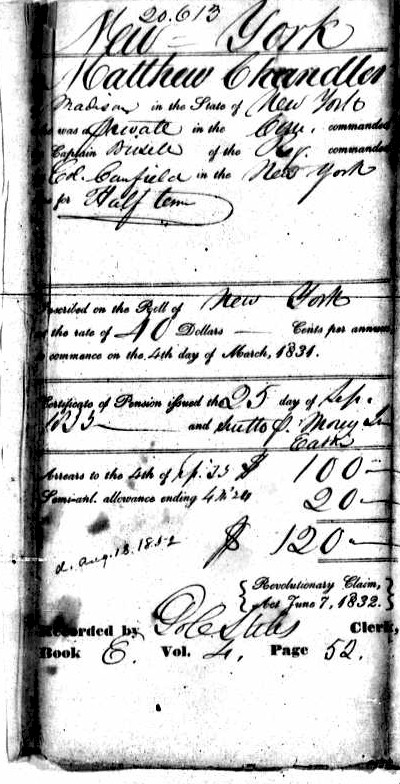 20.613
New York
Matthew Chandler
Madison in the State of New York
was a Private in the Comp. commanded
Captain of the Reg. commanded
Col. Canfield in the New York
for Half term
nscribed on the Roll of New York
the rate of 40 Dollars — Cents per annum
commence on the 4th day of March, 1831.
Certificate of Pension issued the 25 day of Sep.
and
Arrears to the 4th of $ 100
Semi-anl. allowance ending 20
$ 120
d. Aug. 13. 1852
Revolutionary Claim,
Act June 7, 1832.
Recorded by Clerk,
Book E. Vol. 4. Page 52.